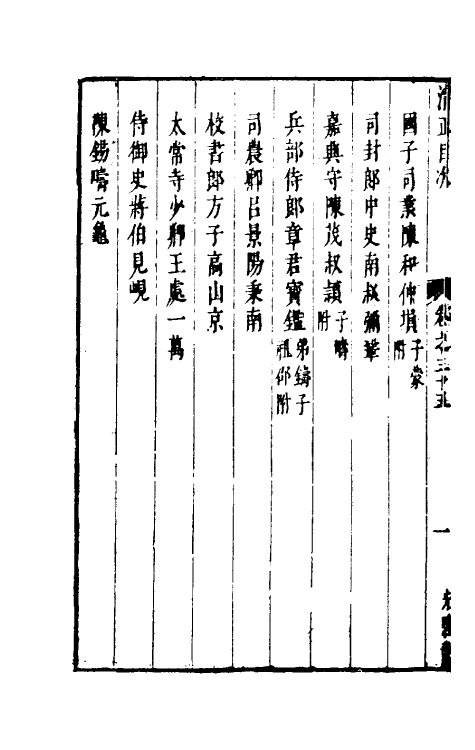 清正目次
卷之三十五
一
國子司業陳和仲塤子蒙附
司封郎中史南叔彌鞏
嘉興守陳茂叔頴子疇附
兵部侍郎章君寶鑑弟鑄子祖卲附
司農卿呂景陽秉南
校書郎方子高山京
太常寺少卿王處一萬
侍御史蔣伯見峴
陳錫疇元龜